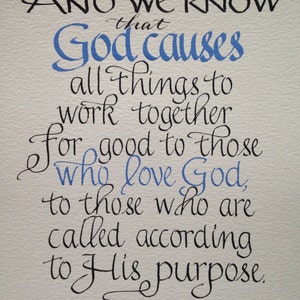 And we know
that
God causes
all things to
work together
for good to those
who love God,
to those who are
called according
to His purpose.